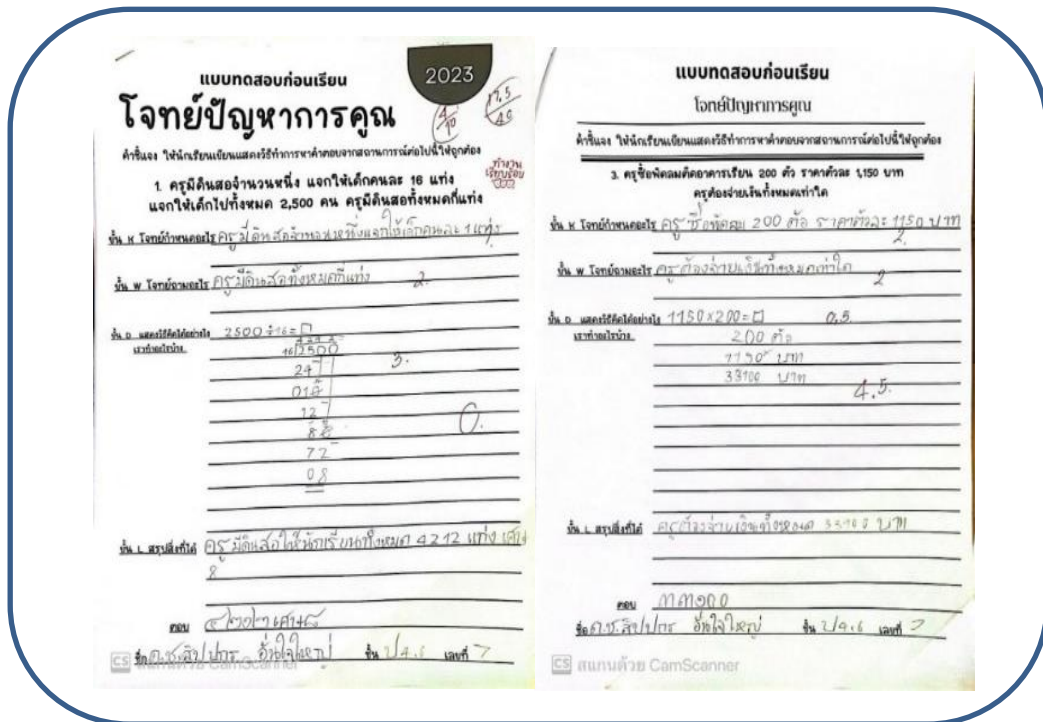 แบบทดสอบก่อนเรียน
2023
โจทย์ปัญหาการคูณ
4/10
17.5/40
คำชี้แจง ให้นักเรียนเขียนแสดงวิธีทำการหาคำตอบจากสถานการณ์ต่อไปนี้ให้ถูกต้อง
ทำงาน
เรียบร้อย
1. ครูมีดินสอจำนวนหนึ่ง แจกให้เด็กคนละ 16 แท่ง
แจกให้เด็กไปทั้งหมด 2,500 คน ครูมีดินสอทั้งหมดกี่แท่ง
ขั้น K โจทย์กำหนดอะไร ครูมีดินสอจำนวนหนึ่งแจกให้เด็กคนละ 1 แท่ง
ขั้น W โจทย์ถามอะไร ครูมีดินสอทั้งหมดกี่แท่ง
2.
ขั้น D แสดงวิธีคิดได้อย่างไร 2500 ÷ 16 = □
เราทำอะไรบ้าง
16 2500
24
3.
12
0.
72
08
ขั้น L สรุปสิ่งที่ได้ ครูมีดินสอให้นักเรียนทั้งหมด 4212 แท่ง เศษ
8
ตอบ ๔๒๑๒ เศษ ๘
ชื่อ ด.ช. สิปปกร อิ่นใจใหญ่ ชั้น ป4.6 เลขที่ 7
CS สแกนด้วย CamScanner
แบบทดสอบก่อนเรียน
โจทย์ปัญหาการคูณ
คำชี้แจง ให้นักเรียนเขียนแสดงวิธีทำการหาคำตอบจากสถานการณ์ต่อไปนี้ให้ถูกต้อง
3. ครูซื้อพัดลมติดอาคารเรียน 200 ตัว ราคาตัวละ 1,150 บาท
ครูต้องจ่ายเงินทั้งหมดเท่าใด
ขั้น K โจทย์กำหนดอะไร ครูซื้อพัดลม 200 ตัว ราคาตัวละ 1150 บาท
2.
ขั้น W โจทย์ถามอะไร ครูต้องจ่ายเงินทั้งหมดเท่าใด
2
ขั้น D แสดงวิธีคิดได้อย่างไร 1150 × 200 = □ 0.5.
เราทำอะไรบ้าง 200 ตัว
1150 บาท
33100 บาท
4.5.
ขั้น L สรุปสิ่งที่ได้ ครูต้องจ่ายเงินทั้งหมด 33100 บาท
ตอบ ๓๓๑๐๐
ชื่อ ด.ช. สิปปกร อิ่นใจใหญ่ ชั้น ป4.6 เลขที่ 7
CS สแกนด้วย CamScanner